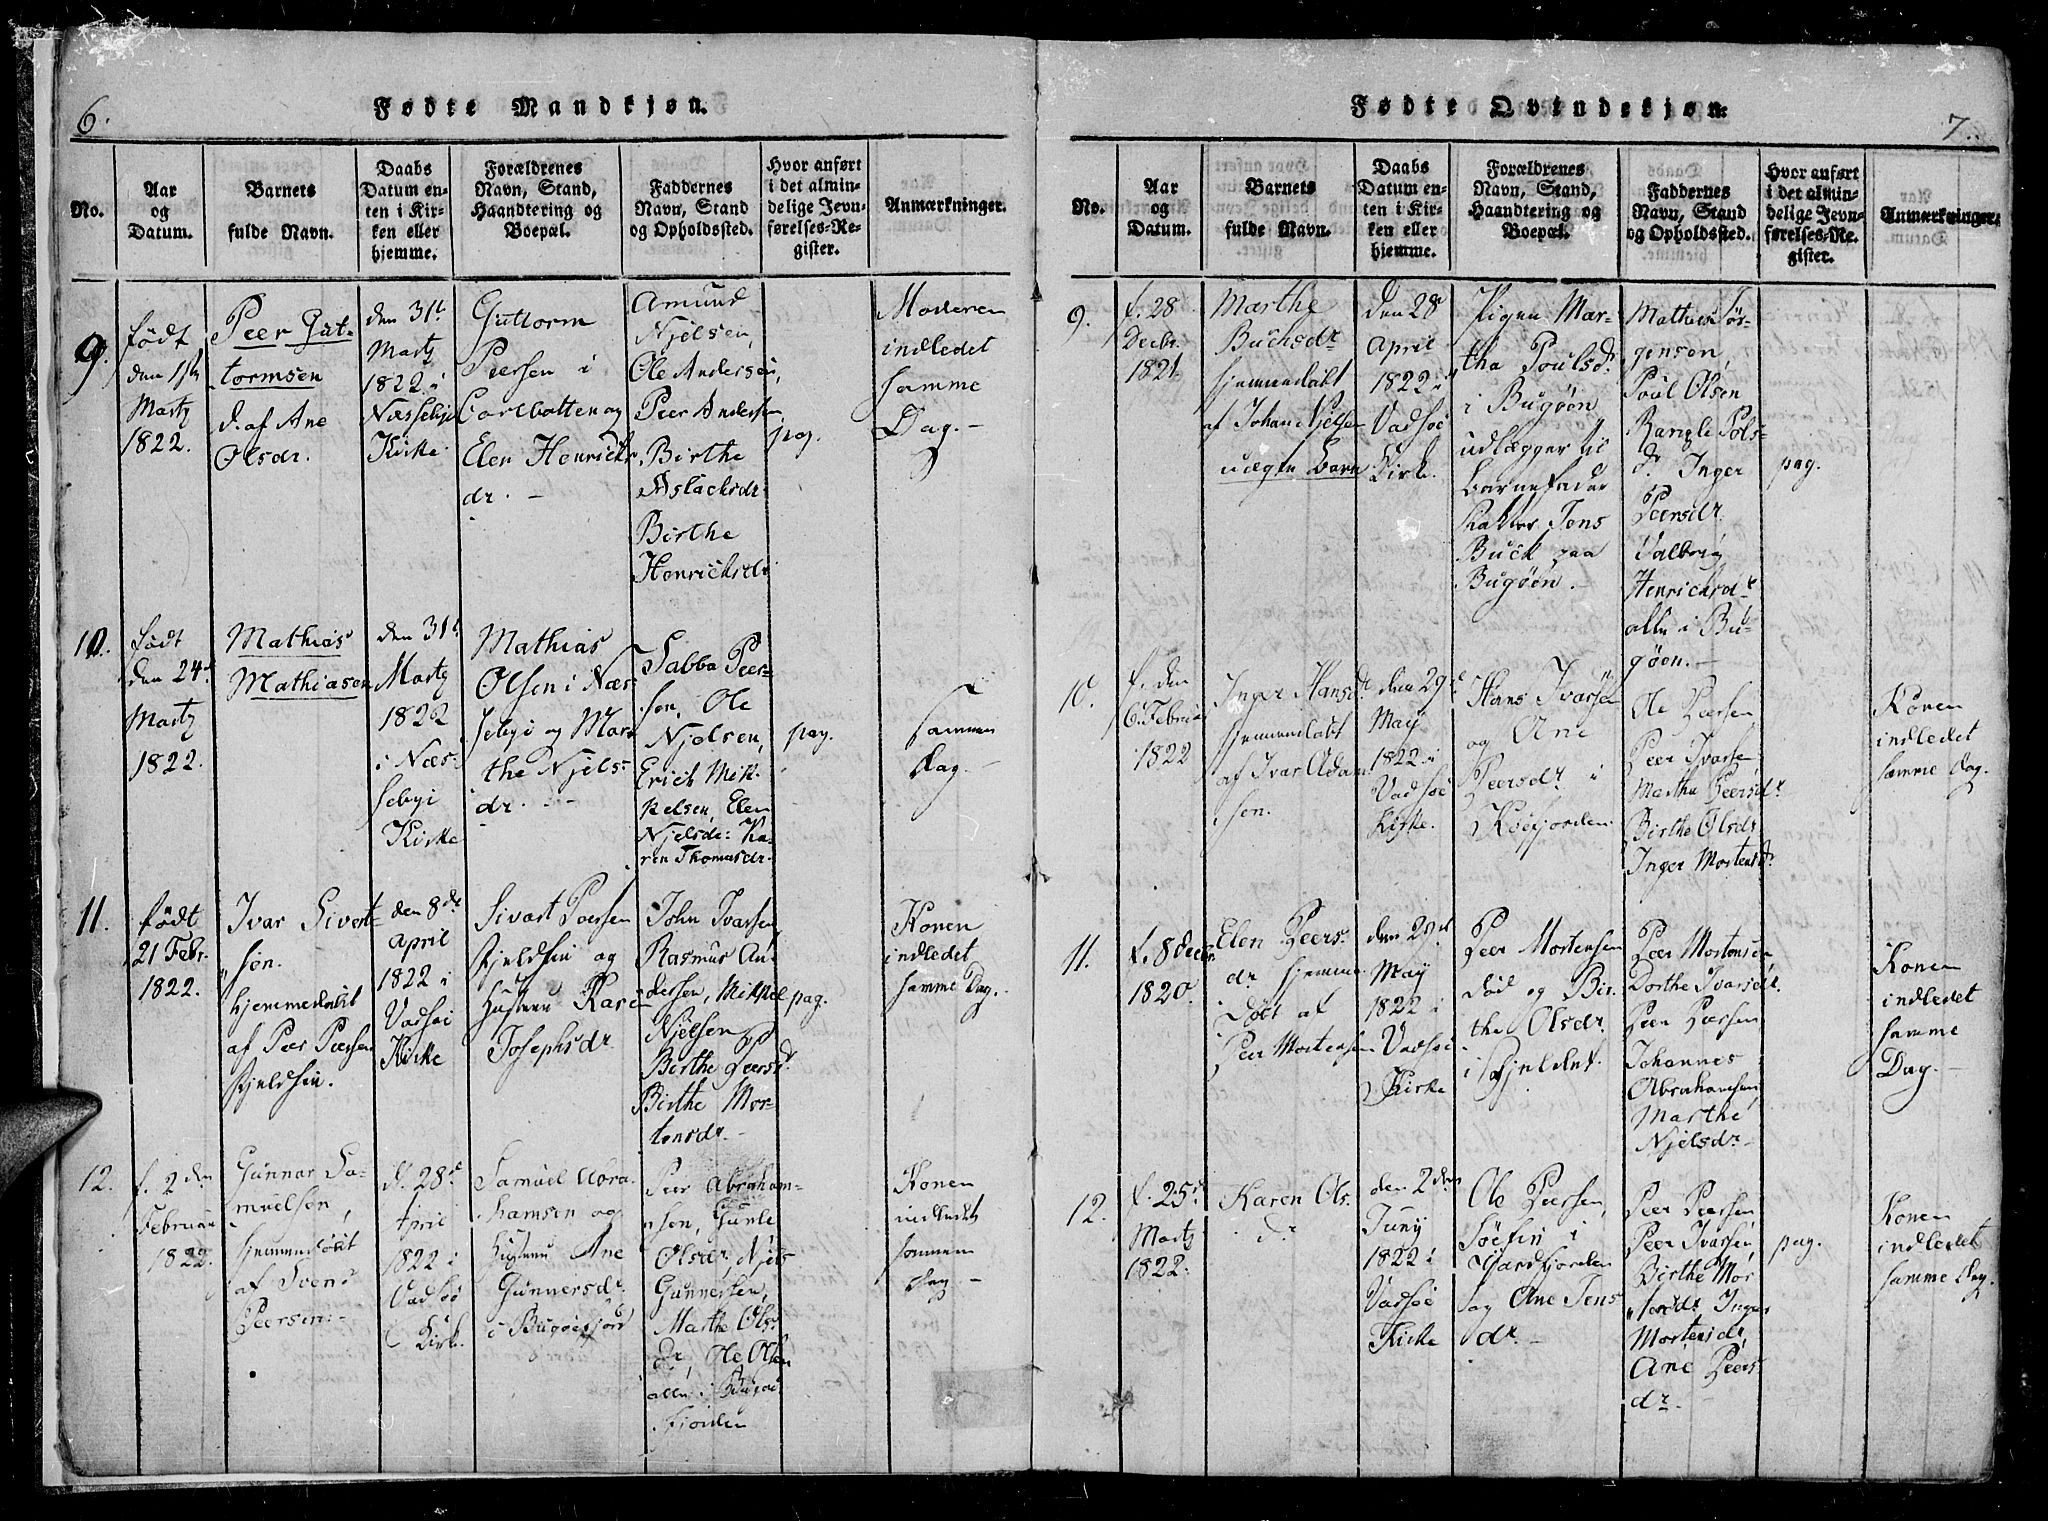 6.
Fødte Mandkjøn.
No.
Aar
og
Datum.
Barnets
fulde Navn.
Daabs
Datum en-
ten i Kir-
ken eller
hjemme.
Forældrenes
Navn, Stand,
Haandtering og
Boepæl.
Faddernes
Navn, Stand
og Opholdssted.
Hvor anført
i det almin-
delige Jevn-
førelses-Re-
gister.
Anmærkninger.
9.
født
den
Martz
1822.
Peer Gut-
tormsen
d. af Ane
Olsdr.
den 31t
Martz
1822 i
Næssebye
Kirke
Guttorm
Peersen i
Carlbotten og
Elen Henrichs
dr. -
Amund
Njelsen,
Ole Andersen,
Peer Andersen,
Birthe
Aslachsdr.
Birthe
Henrichsdr
pag.
Moderen
indledet
samme
Dag. -
10.
født
den 24d
Martz
1822.
Mathias
Mathiasen
den 31t
Martz
1822
i Næs-
sebyi
Kirke
Mathias
Olsen i Næs-
sebyi og Mar-
the Njels-
dr. -
Sabba Peer-
sen, Ole
Njelsen,
Erich Mik-
kelsen, Elen
Njelsdr: Ka-
ren Thomasdr.
pag.
sammen
Dag. -
11.
født
21 Febr.
1822.
Ivar Sivert-
sen.
hjemmedøbt
af Peer Peersen
den 8de
April
1822 i
Vadsøe
Kirke
Sivart Peersen
og
Hustrue Kari
Josephsdr
John Ivarsen,
Rasmus An-
dersen, Mikkel
Njelsen
Birthe Peersd.
Birthe Mor-
tensdr. -
pag.
Konen
indledet
samme Dag.
12.
f. 2den
Februar
1822.
Gunnar Sa-
muelsen,
hjemmedøbt
af Svend
Peersen. -
d. 28de
April
1822 i
Vadsø
Kirk.
Samuel Abra-
hamsen og
Hustrue Ane
Gunnersdr
i Bugøefjord
Peer Abraham-
sen, Gunle
Olsdr, Njels
Gunnersen,
Marthe Ols-
dr, Ole Olsen
alle i Bugøe
fiorden
Konen
indledet
sammen
dag -
Fødte Qvindekjøn.
7.
No.
Aar
og
Datum.
Barnets
fulde Navn.
Daabs
Datum en-
ten i Kir-
ken eller
hjemme.
Forældrenes
Navn, Stand,
Haandtering og
Boepæl.
Faddernes
Navn, Stand
og Opholdssted.
Hvor anført
i det almin-
delige Jevn-
førelses-Re-
gister.
Anmærkninger.
9.
f. 28
Decbr.
1821
Marthe
Buchsdr
hjemmedøbt
af Johan Njelsen
uægte Barn
den 28
April
1822 i
Vadsøe
Kirk.
Pigen Mar-
tha Poulsd.
i Bugøen
udlægger til
Barnefader
Jens
Buck paa
Bugøen.
Mathias Jør-
gensen,
Poul Olsen
Rangle Pols-
d. Inger
Peersdr.
Valborg
Henrichsdr
alle i Bu-
gøen. -
pag.
10.
f. den
6. Februar
1822
Inger Hansd.
hjemmedøbt
af Ivar Adam-
sen.
den 29de
May
1822 i
Vadsøe
Kirke.
Hans Ivarsen
og Ane
Peersdr i
Kiøefjorden
Ole Peersen
Peer Ivarsen
Martha Peersdr
Birthe Olsdr
Inger Mortensd.
Konen
indledet
samme dag.
11.
f. 8 Decbr.
1820.
Elen Peers-
dr hjemme
døbt af
Peer Mortensen
den 29de
May
1822 i
Vadsøe
Kirke
Peer Mortensen
død og Bir-
the Olsdr.
i
Peer Mortensen
Dorthe Ivarsdr.
Peer Peersen
Johannes
Abrahamsen,
Marthe
Njelsdr -
Konen
indledet
samme
Dag. -
12.
f. 25d
Martz
1822.
Karen Ols-
dr
den 2den
Juny
1822 i
Vadsøe
Kirke
Ole Peersen,
Søefin i
Jarfjorden
og Ane Jens
dr. -
Peer Peersen
Peer Ivarsen
Birthe Mor-
tensdr. Inger
Mortensdr,
Ane Peers
dr. -
pag.
Konen
indledet
samme dag.